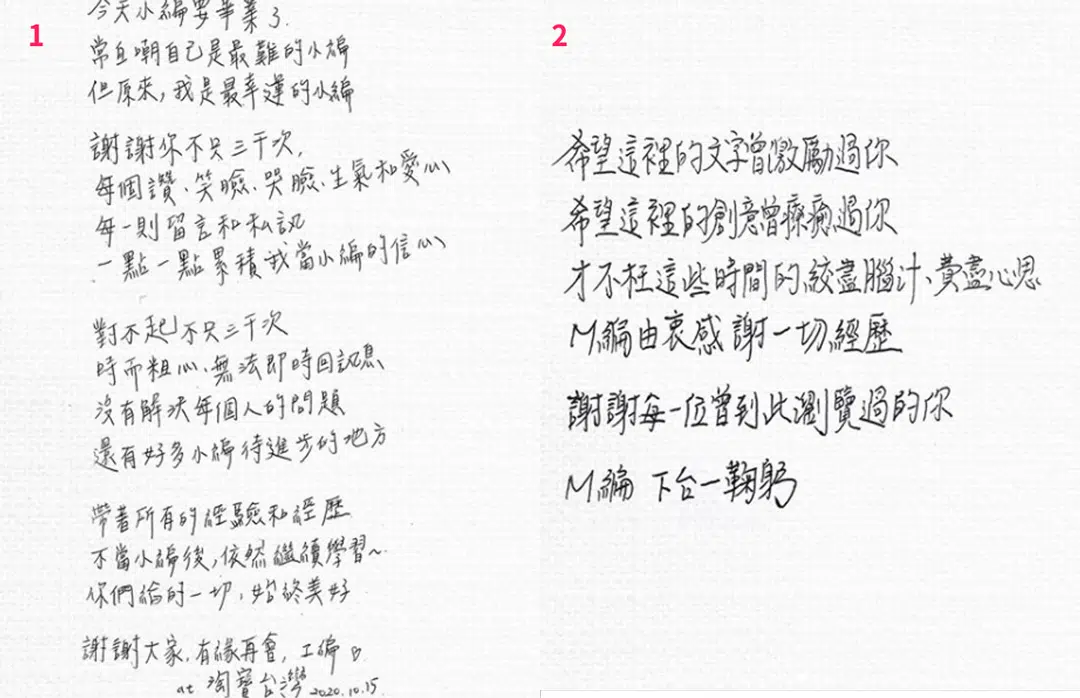 1
今天小編要畢業了.
常自嘲自己是最難的小編
但原來,我是最幸運的小編
謝謝你不只三千次,
每個讚、笑臉、哭臉、生氣和愛心
每一則留言和私訊
一點一點累積我當小編的信心
對不起 不只三千次
時而粗心、無法即時回訊息
沒有解決每個人的問題
還有好多小編待進步的地方
帶著所有的經驗和經歷
不當小編後,依然繼續學習~
你們給的一切,始終美好
謝謝大家,有緣再會,工編
at 淘寶台灣 2020.10.15
2
希望這裡的文字曾激勵過你
希望這裡的創意曾療癒過你
才不枉這些時間的絞盡腦汁、費盡心思
M編由衷感謝一切經歷
謝謝每一位曾到此瀏覽過的你
M編 下台一鞠躬